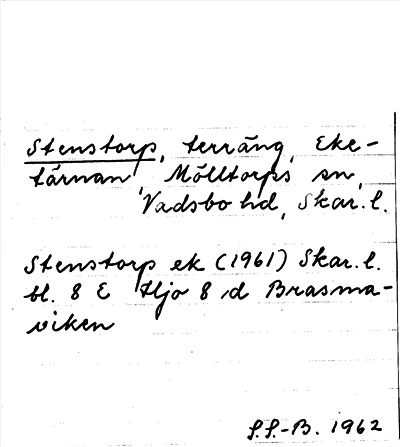 Stenstorp, terräng, Eke-
tärnan, Mölltorps sn,
Vadsbo hd, Skar. l.
Stenstorp ek (1961) Skar. l.
bl. 8 E Hjo 8 d Brasma-
viken
S.S.-B. 1962